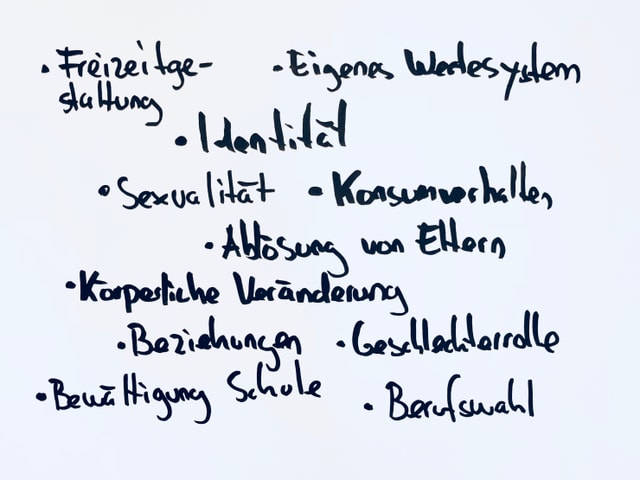 • Freizeitge-
staltung
• Eigenes Wertesystem
• Identität
• Sexualität
• Konsumverhalten
• Ablösung von Eltern
• Körperliche Veränderung
• Beziehungen
• Geschlechterrolle
• Bewältigung Schule
• Berufswahl